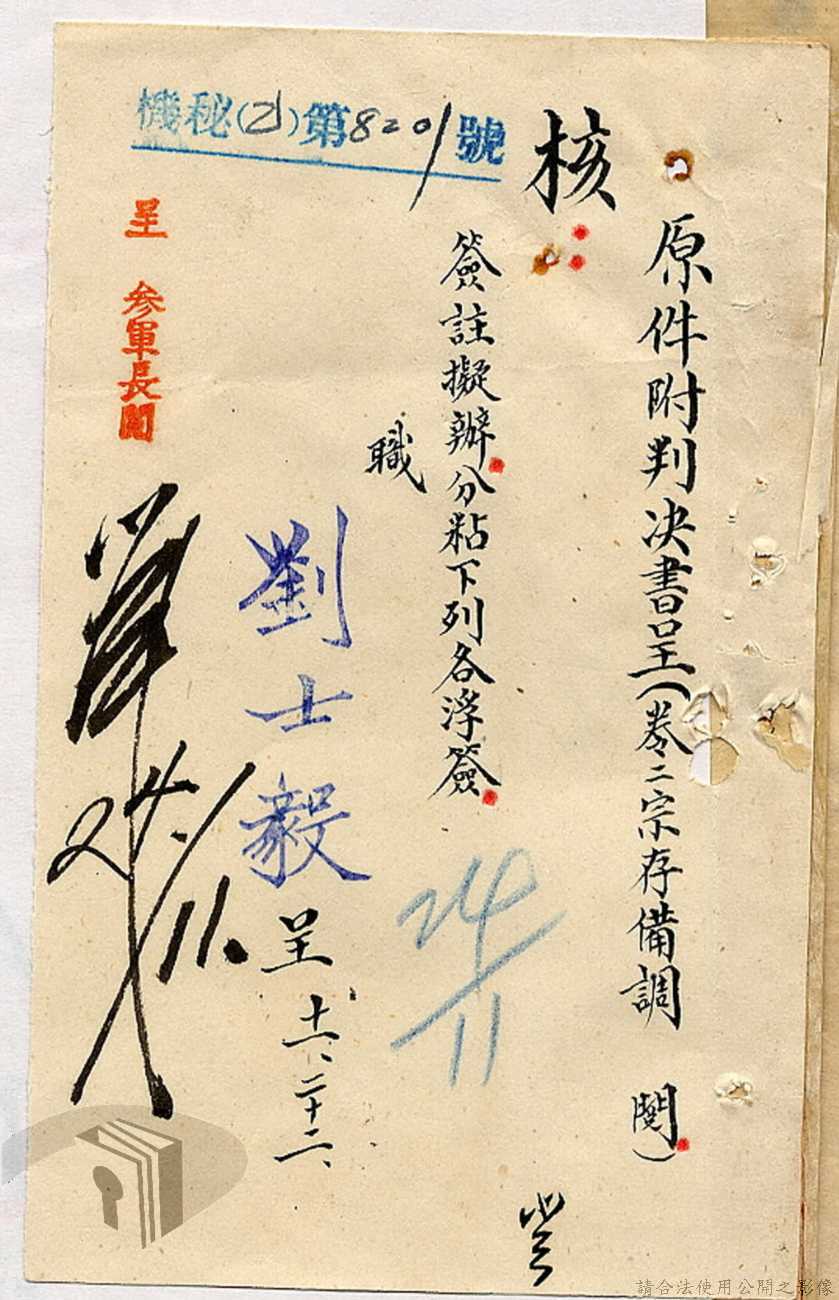 原件附判决書呈(卷二宗存備調　閱)
核
簽註擬辦分粘下列各浮簽
職
劉士毅
呈 十一、二十二、
機秘(乙)第8201號
呈 參軍長閱
24/11
24/11.
請合法使用公開之影像